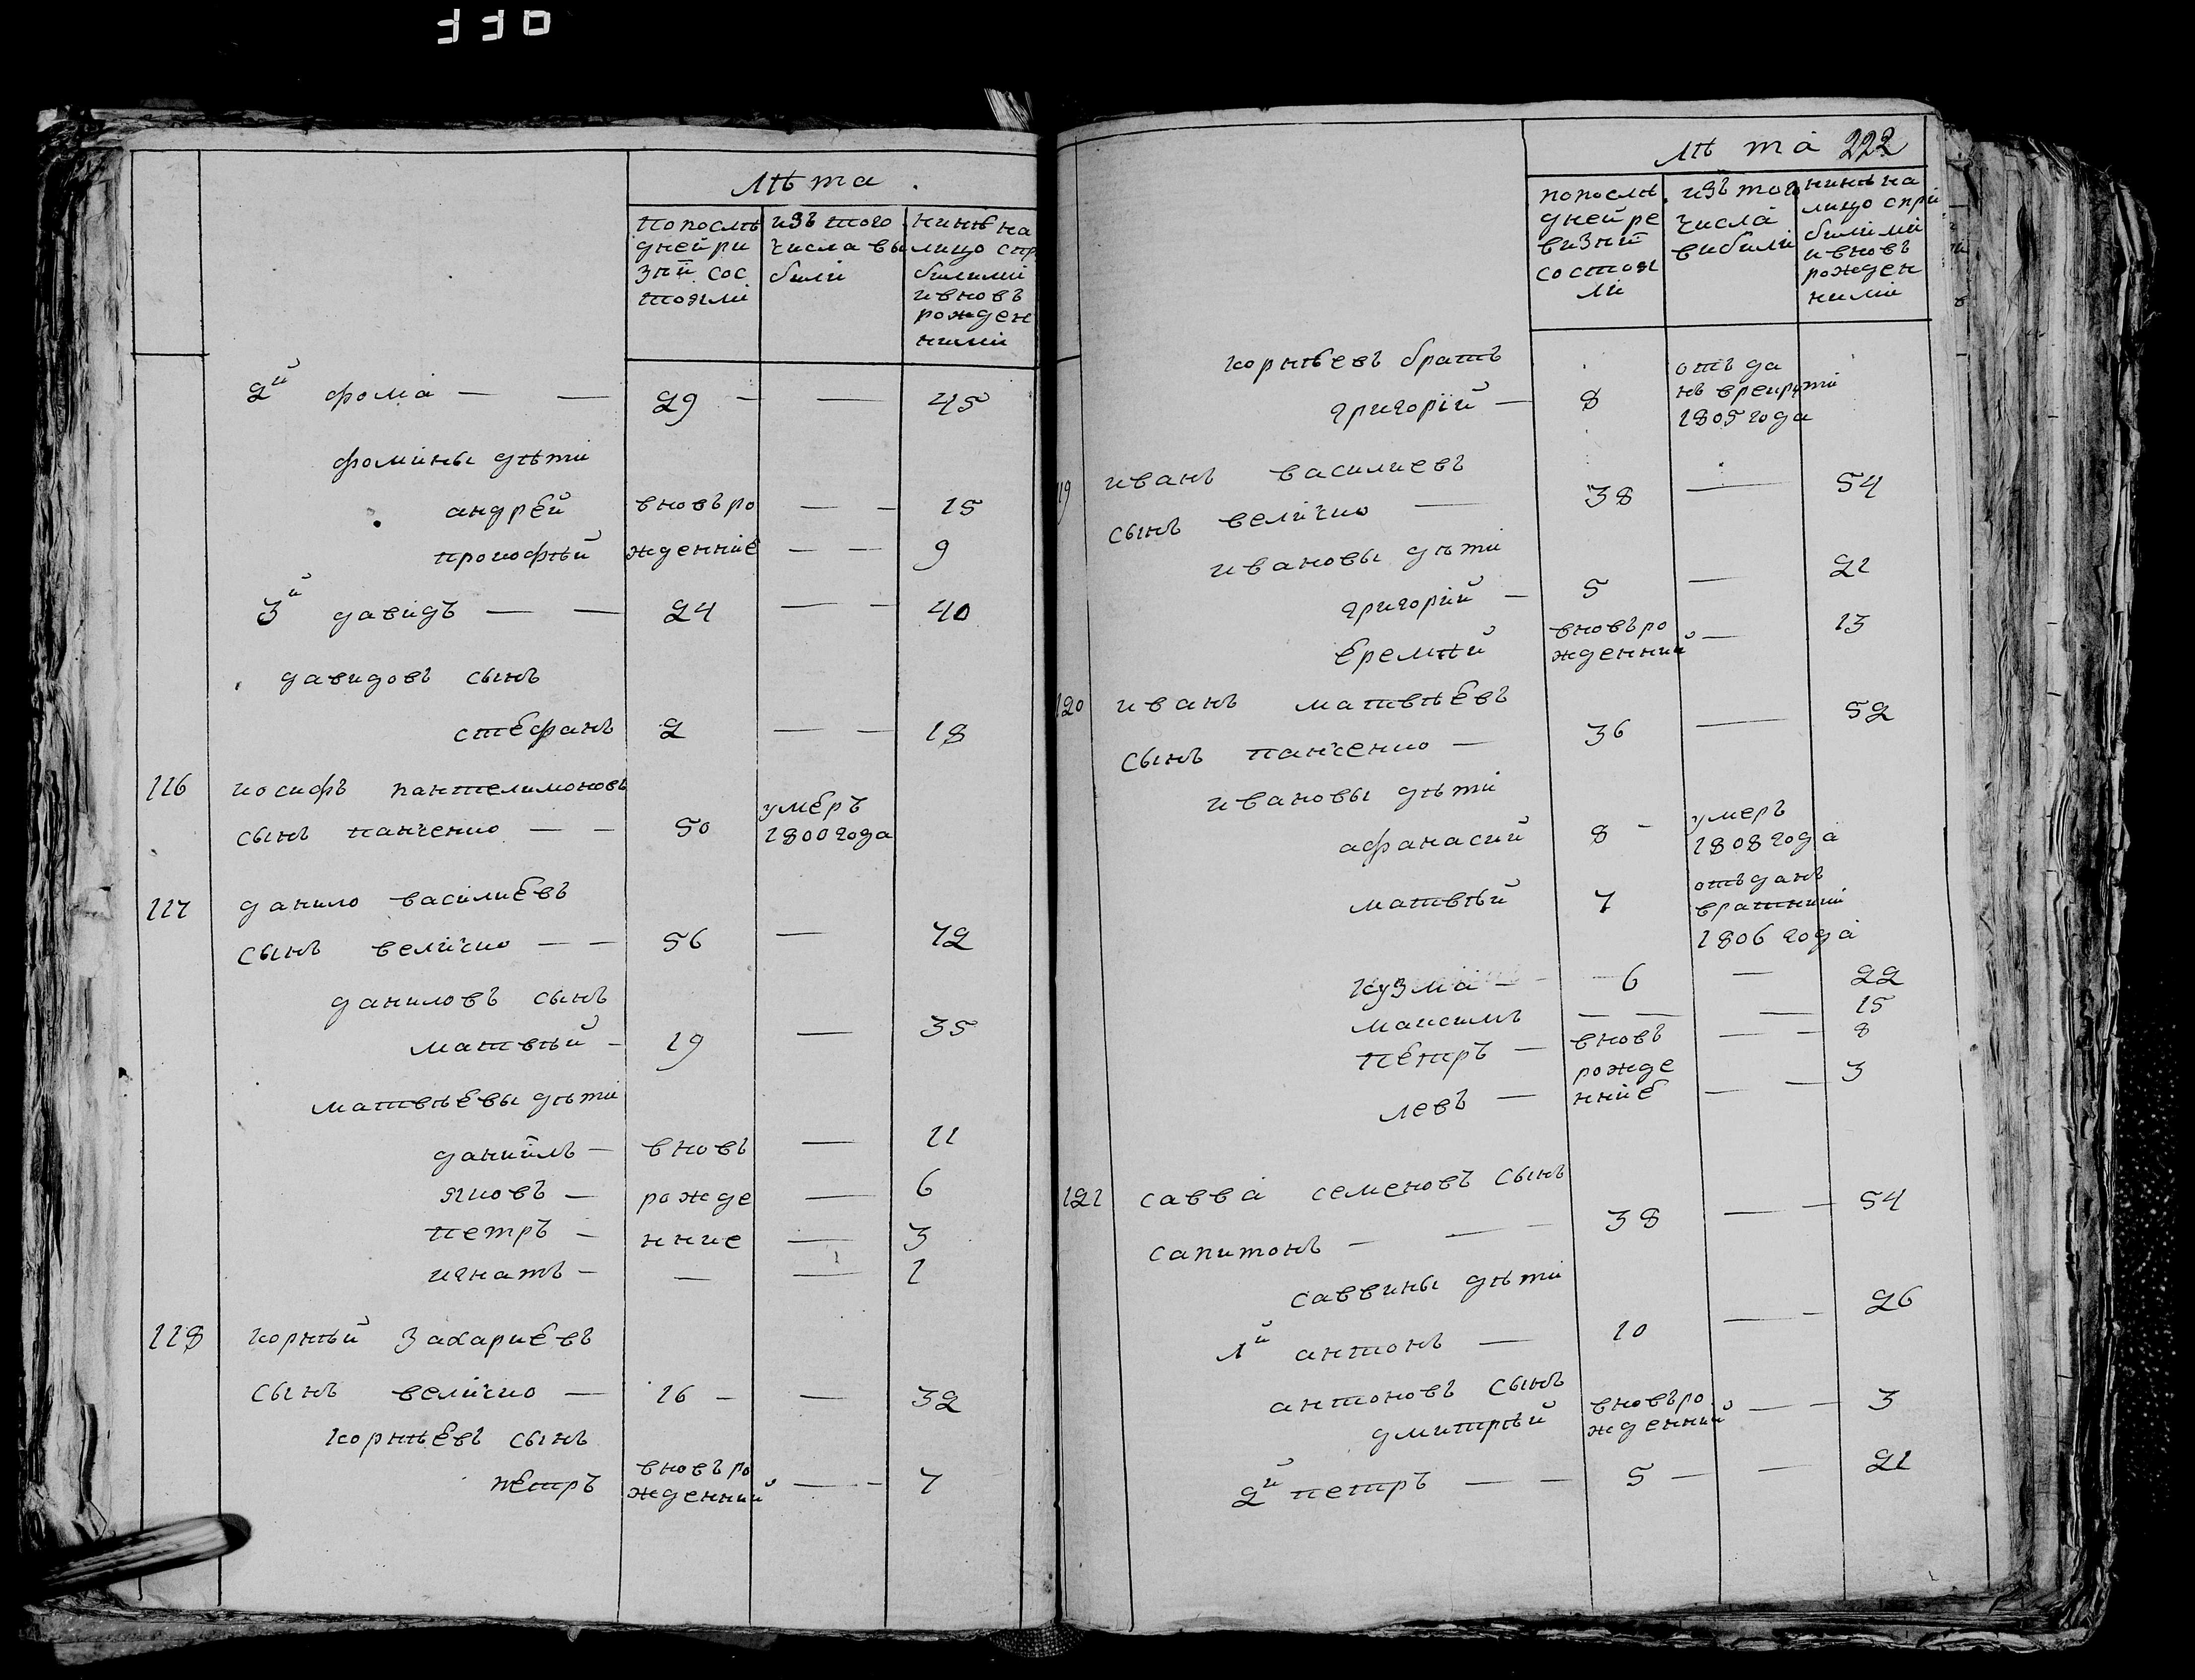 330
лѣта
попослѣ изъ того нинѣ на
дней ри числа вы лицо спр
зіи сос били билими
тояли ивновъ
рожден
ними
2й фома — — 29 — — 45
фомины дѣти
андрей вновъро — — 15
прокофѣй жденніе — — 9
3й давидъ — — 24 — — 40
давидовъ сынъ
стефанъ 2 — — 18
116 иосифъ пантелимоновъ
умеръ
сынъ панченко — — 50 1800 года
117 данило василиевъ
сынъ величко — — 56 — 72
даниловъ сынъ
матвѣй — 19 — 35
матвѣевы дѣти
даниилъ — вновъ — 11
яковъ — рожде — 6
петръ — нние — 3
игнатъ — — — 1
118 корнѣй захариевъ
сынъ величко — 16 — — 32
корнѣевъ сынъ
вновъро
петръ жденний — — 7
лѣта 222
попослѣ изъ того нинѣ на
дней ре числа лицо спри
визіи вибили билими
состоя ивновъ
ли рожден
ними
корнѣевъ братъ отъда
григорій — 8 нъ врекрути
1805 года
119 иванъ василиевъ
сынъ величко — 38 — 54
ивановы дѣти
григорий — 5 — 21
еремѣй вновъро — 13
жденний
120 иванъ матвѣевъ
сынъ панченко — 36 — 52
ивановы дѣти
афанасий 8 — умеръ
1808 года
матвѣй 7 отъданъ
вратники
1806 года
кузма — — 6 — 22
максимъ — — — 15
петръ — вновъ — — 8
рожде
левъ — нніе — — 3
121 савва семеновъ сынъ
сапитонъ — — 38 — — 54
саввины дѣти
1й антонъ — 10 — — 26
антоновъ сынъ
дмитрѣй вновъро — — 3
жденний
2й петръ — — 5 — — 21